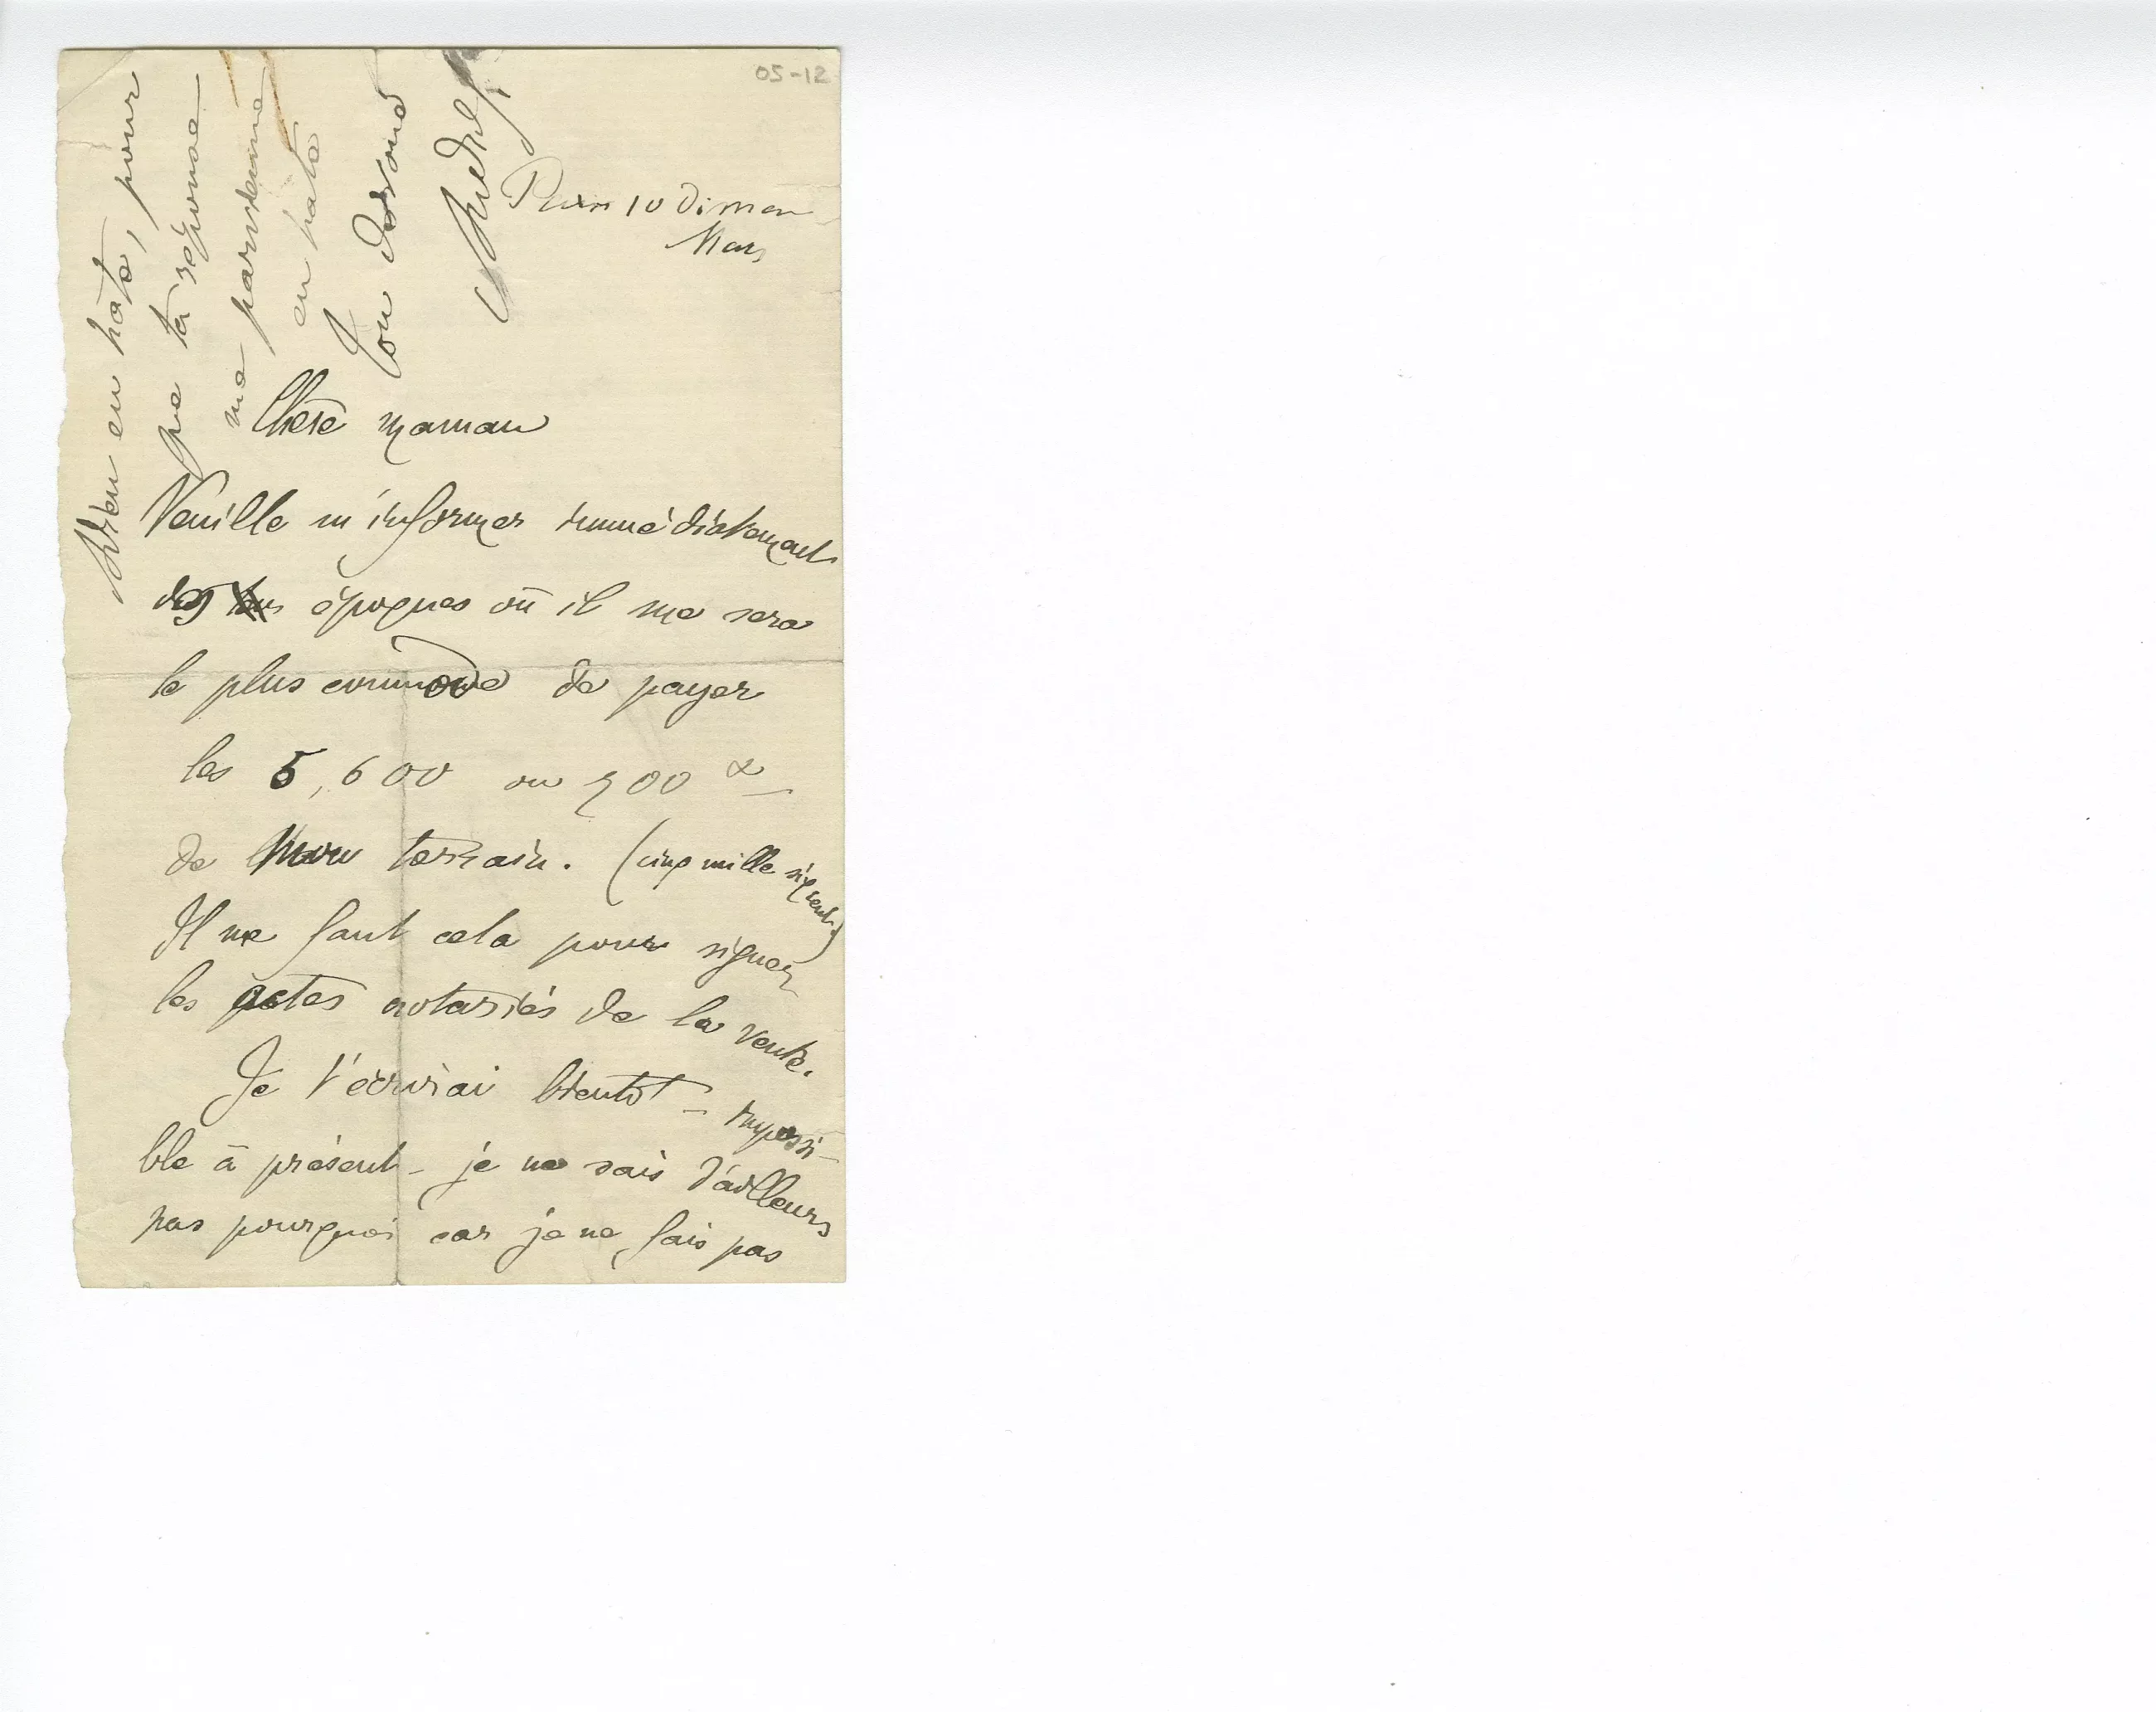 05-12
Paris 10 Diman
Mars
Chère maman
Veuille m'informer immédiatement
des époques où il me sera
le plus commode de payer
les 5,600 ou 700
de mon terrain. (cinq mille six cent.)
Il me faut cela pour signer
les actes notariés de la vente.
Je t'écrirai bientôt - impossi-
ble à présent - je ne sais d'ailleurs
pas pourquoi car je ne fais pas
Adieu en hâte, pour
que ta réponse
me parvienne
en hâte
Ton dévoué